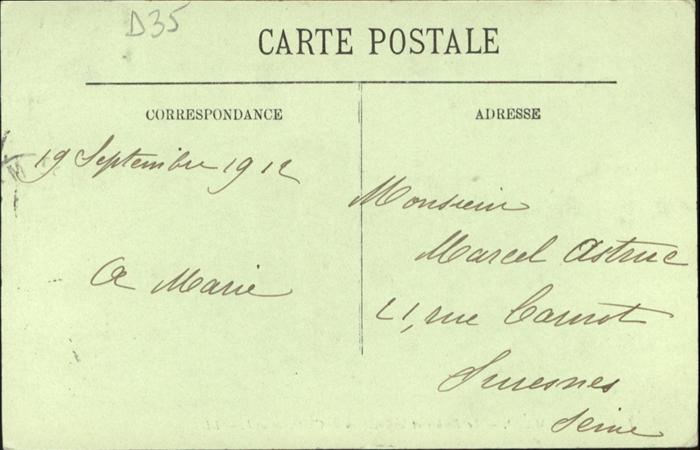 D35
CARTE POSTALE
CORRESPONDANCE
ADRESSE
19 Septembre 1912
A Marie
Monsieur
Marcel Astruc
11, rue Carnot
Suresnes
Seine